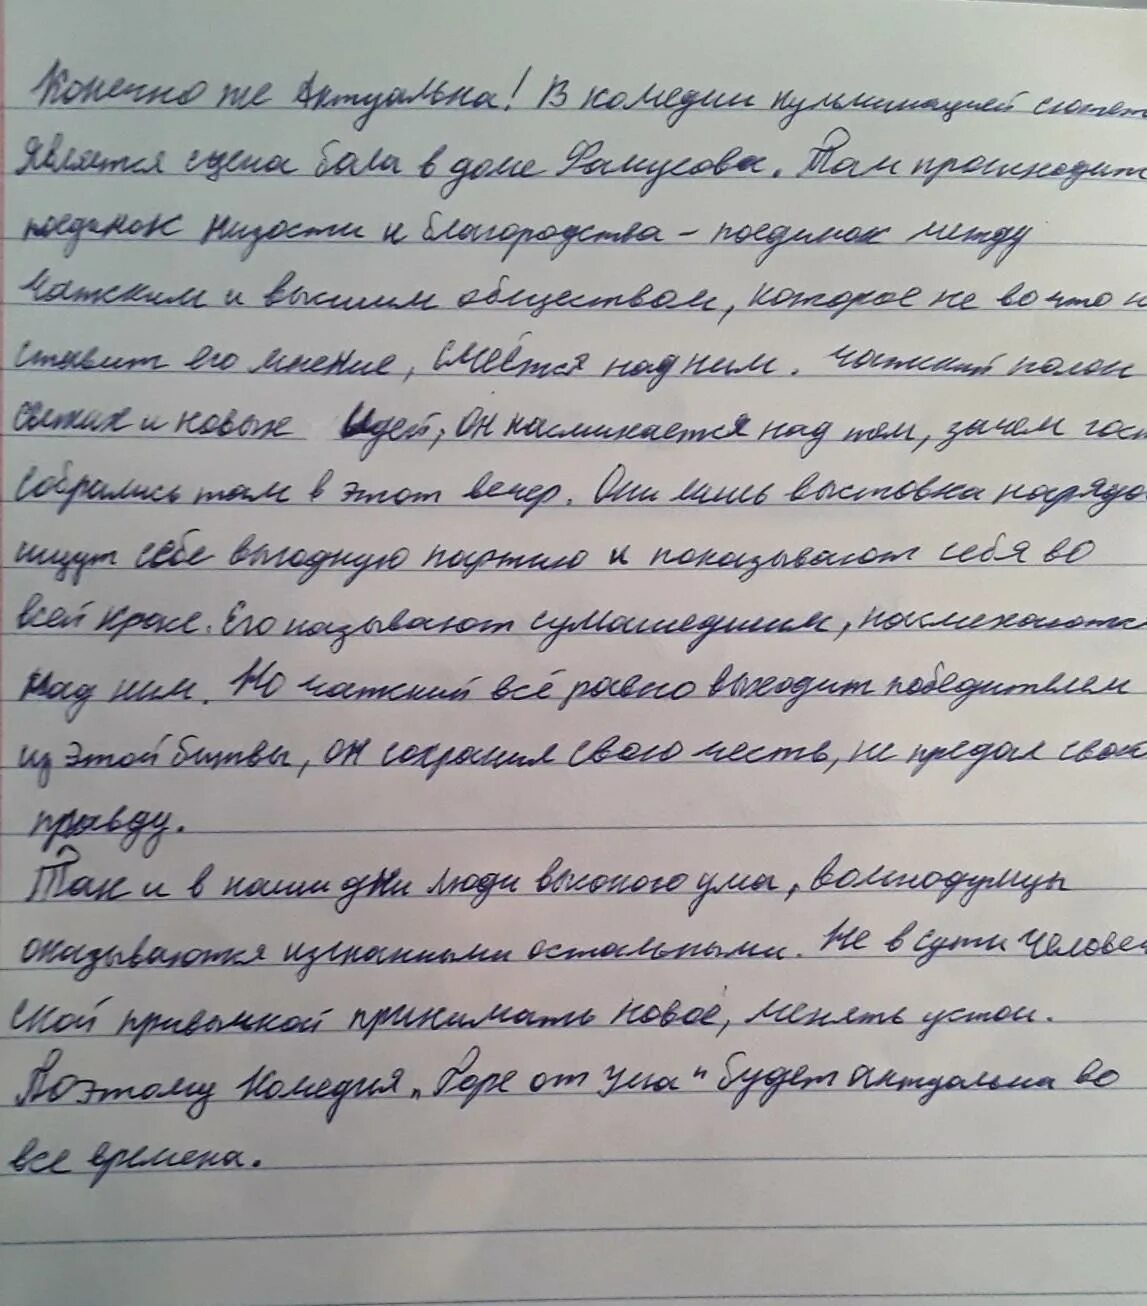 Конечно же Актуальна! В комедии кульминацией сюжет
является сцена бала в доме Фамусова. Там происходит
поединок низости и благородства – поединок между
Чатским и высшим обществом, которое не во что н
ставит его мнение, смеётся над ним. Чатский полон
свежих и новых идей, он насмихается над тем, зачем гос
собрались там в этот вечер. Они лишь выстовка нарядо
ищут себе выгодную партию и показывают себя во
всей красе. Его называют сумашедшим, насмехаются
над ним. Но Чатский всё равно выходит победителем
из этой битвы, он сохранил свою честь, не предал свою
правду.
Так и в наши дни люди высокого ума, вольнодумцы
оказываются изгнанными остальными. Не в сути человеч
ской привычкой принимать новое, менять устои.
Поэтому Комедия „Горе от Ума" будет актуальна во
все времена.